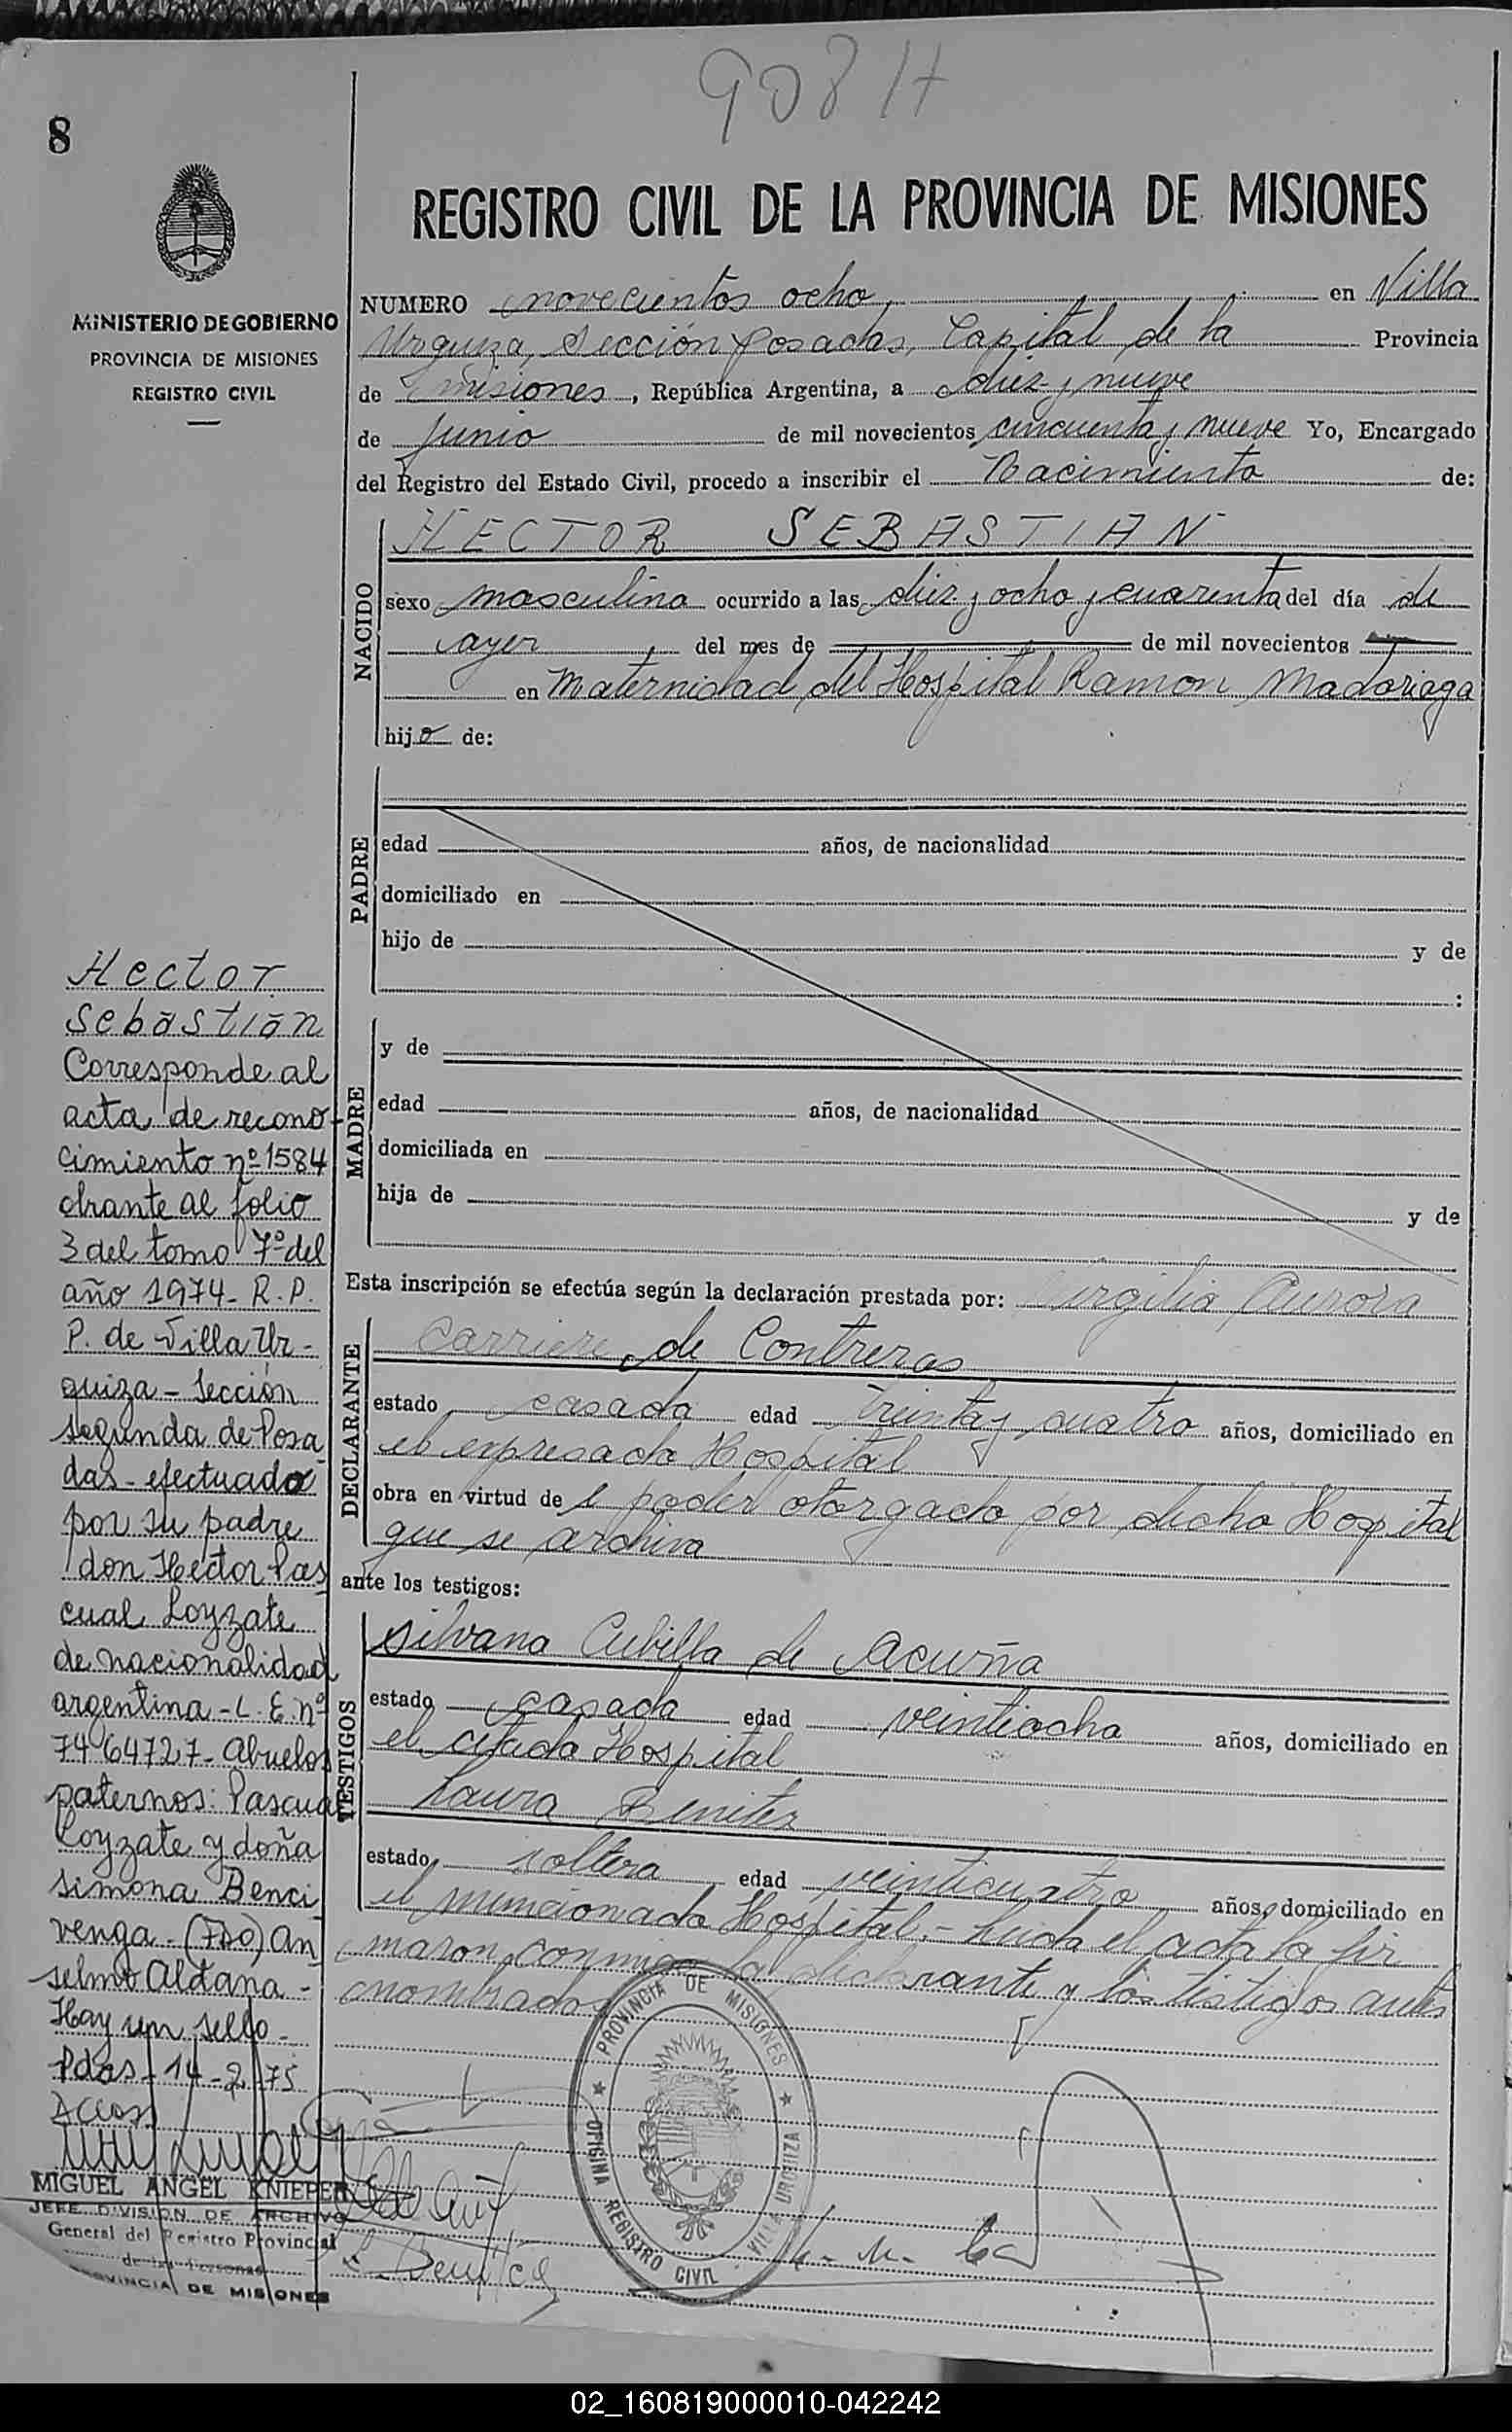 908 H
8
REGISTRO CIVIL DE LA PROVINCIA DE MISIONES
MINISTERIO DE GOBIERNO
PROVINCIA DE MISIONES
REGISTRO CIVIL
NUMERO novecientos ocho, en Villa
Urquiza, Sección Posadas, Capital de la Provincia
de Misiones, República Argentina, a diez y nueve
de Junio de mil novecientos cincuenta y nueve Yo, Encargado
del Registro del Estado Civil, procedo a inscribir el Nacimiento de:
NACIDO
HECTOR SEBASTIAN
sexo masculino ocurrido a las diez y ocho y cuarenta del día de
ayer del mes de de mil novecientos
en Maternidad del Hospital Ramon Madariaga
hijo de:
PADRE
edad años, de nacionalidad
domiciliado en
hijo de y de
:
MADRE
y de
edad años, de nacionalidad
domiciliada en
hija de y de
Esta inscripción se efectúa según la declaración prestada por: Virgilia Aurora
DECLARANTE
Carriere de Contreras
estado casada edad treinta y cuatro años, domiciliado en
el expresado Hospital
obra en virtud de l poder otorgado por dicho Hospital
que se archiva
ante los testigos:
TESTIGOS
Silvana Cubilla de Acuña
estado casada edad veintiocho años, domiciliado en
el citado Hospital
Laura Benitez
estado soltera edad veinticuatro años, domiciliado en
el mencionado Hospital.- Leida el acta la fir
maron conmigo la declarante y los testigos antes
nombrados
PROVINCIA DE MISIONES
OFICINA REGISTRO CIVIL VILLA URQUIZA
L. Benitez
Hector
Sebastián
Corresponde al
acta de recono-
cimiento nº 1584
obrante al folio
3 del tomo 7º del
año 1974- R.P.
P. de Villa Ur-
quiza - Sección
segunda de Posa
das - efectuado
por su padre
don Hector Pas
cual Loyzate
de nacionalidad
argentina - L.E. nº
7464727- Abuelos
paternos: Pascual
Loyzate y doña
Simona Benci
venga - (Fdo) An
selmo Aldana -
Hay un sello -
Pdas - 14-2-75
MIGUEL ANGEL KNIEPER
JEFE DIVISION DE ARCHIVO
General del Registro Provincial
de las Personas
PROVINCIA DE MISIONES
02_160819000010-042242